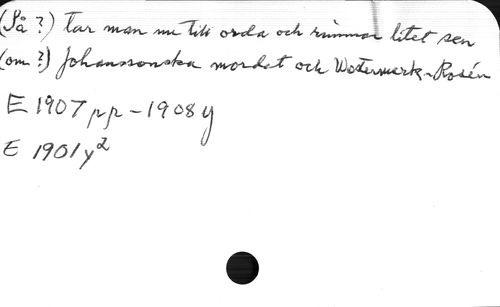 (Så ?) Tar man nu till orda och rimmar litet sen
(om ?) Johanssonska mordet och Watermark-Rosén
E 1907 pp - 1908 y
E 1901 y²